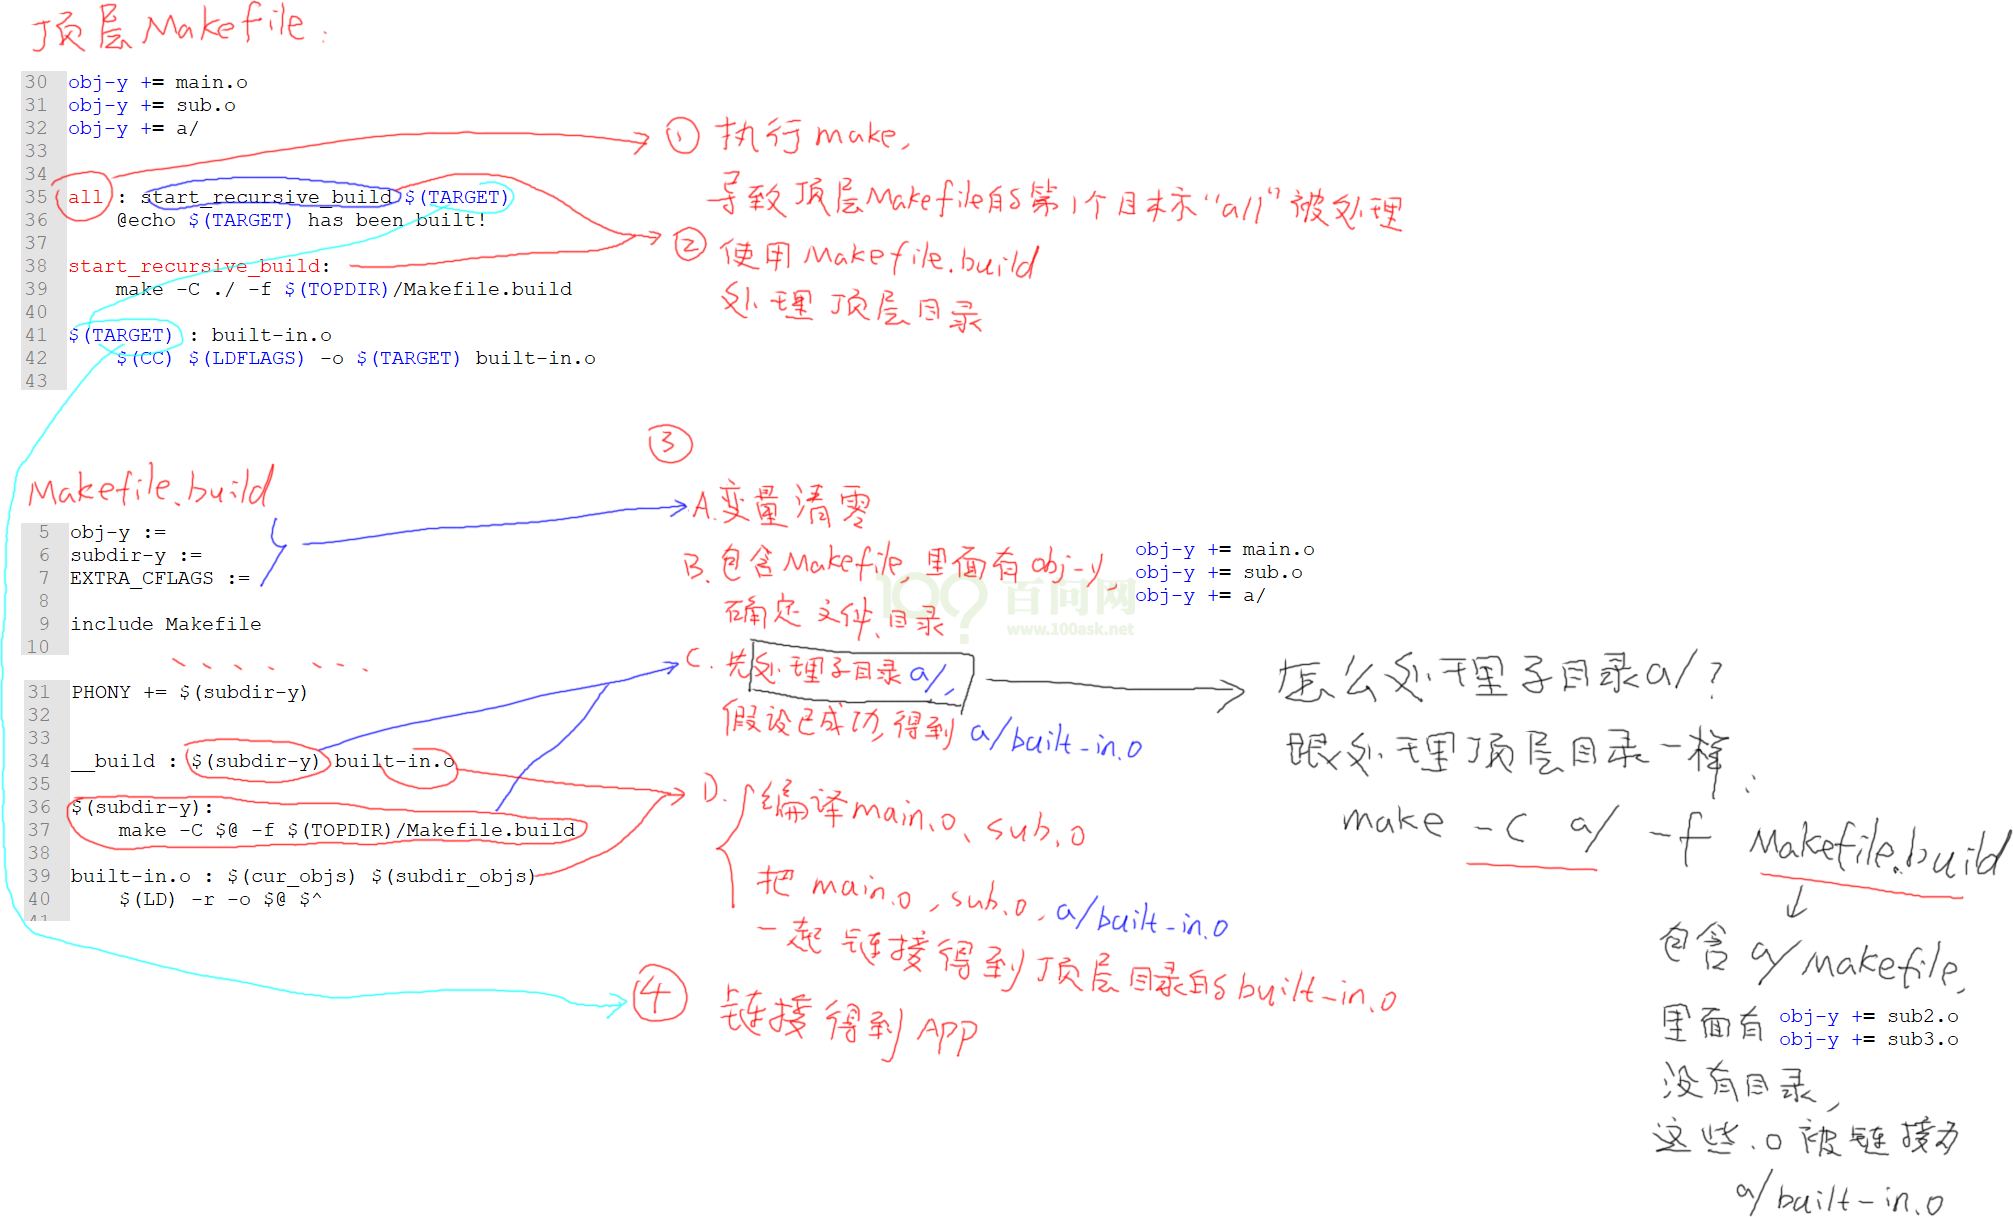 顶层Makefile:
30 obj-y += main.o
31 obj-y += sub.o
32 obj-y += a/
33
34
35 all : start_recursive_build $(TARGET)
36 @echo $(TARGET) has been built!
37
38 start_recursive_build:
39 make -C ./ -f $(TOPDIR)/Makefile.build
40
41 $(TARGET) : built-in.o
42 $(CC) $(LDFLAGS) -o $(TARGET) built-in.o
43
① 执行make,
导致顶层Makefile的第1个目标"all"被处理
② 使用Makefile.build
处理顶层目录
Makefile.build
5 obj-y :=
6 subdir-y :=
7 EXTRA_CFLAGS :=
8
9 include Makefile
10
31 PHONY += $(subdir-y)
32
33
34 __build : $(subdir-y) built-in.o
35
36 $(subdir-y):
37 make -C $@ -f $(TOPDIR)/Makefile.build
38
39 built-in.o : $(cur_objs) $(subdir_objs)
40 $(LD) -r -o $@ $^
41
③
A.变量清零
B.包含Makefile,里面有obj-y,
确定文件、目录
obj-y += main.o
obj-y += sub.o
obj-y += a/
100? 百问网
www.100ask.net
C.先处理子目录a/,
假设已成功,得到a/built-in.o
D.编译main.o、sub.o
把main.o,sub.o,a/built-in.o
一起链接得到顶层目录的built-in.o
④ 链接得到APP
怎么处理子目录a/?
跟处理顶层目录一样:
make -C a/ -f Makefile.build
包含a/Makefile,
里面有
obj-y += sub2.o
obj-y += sub3.o
没有目录,
这些.o被链接为
a/built-in.o